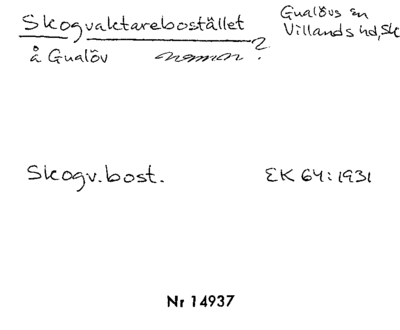 Skogvaktarebostället
Gualövs sn
Villands hd, Sk
å Gualöv ?
Skogv.bost.
EK 64:1931
Nr 14937